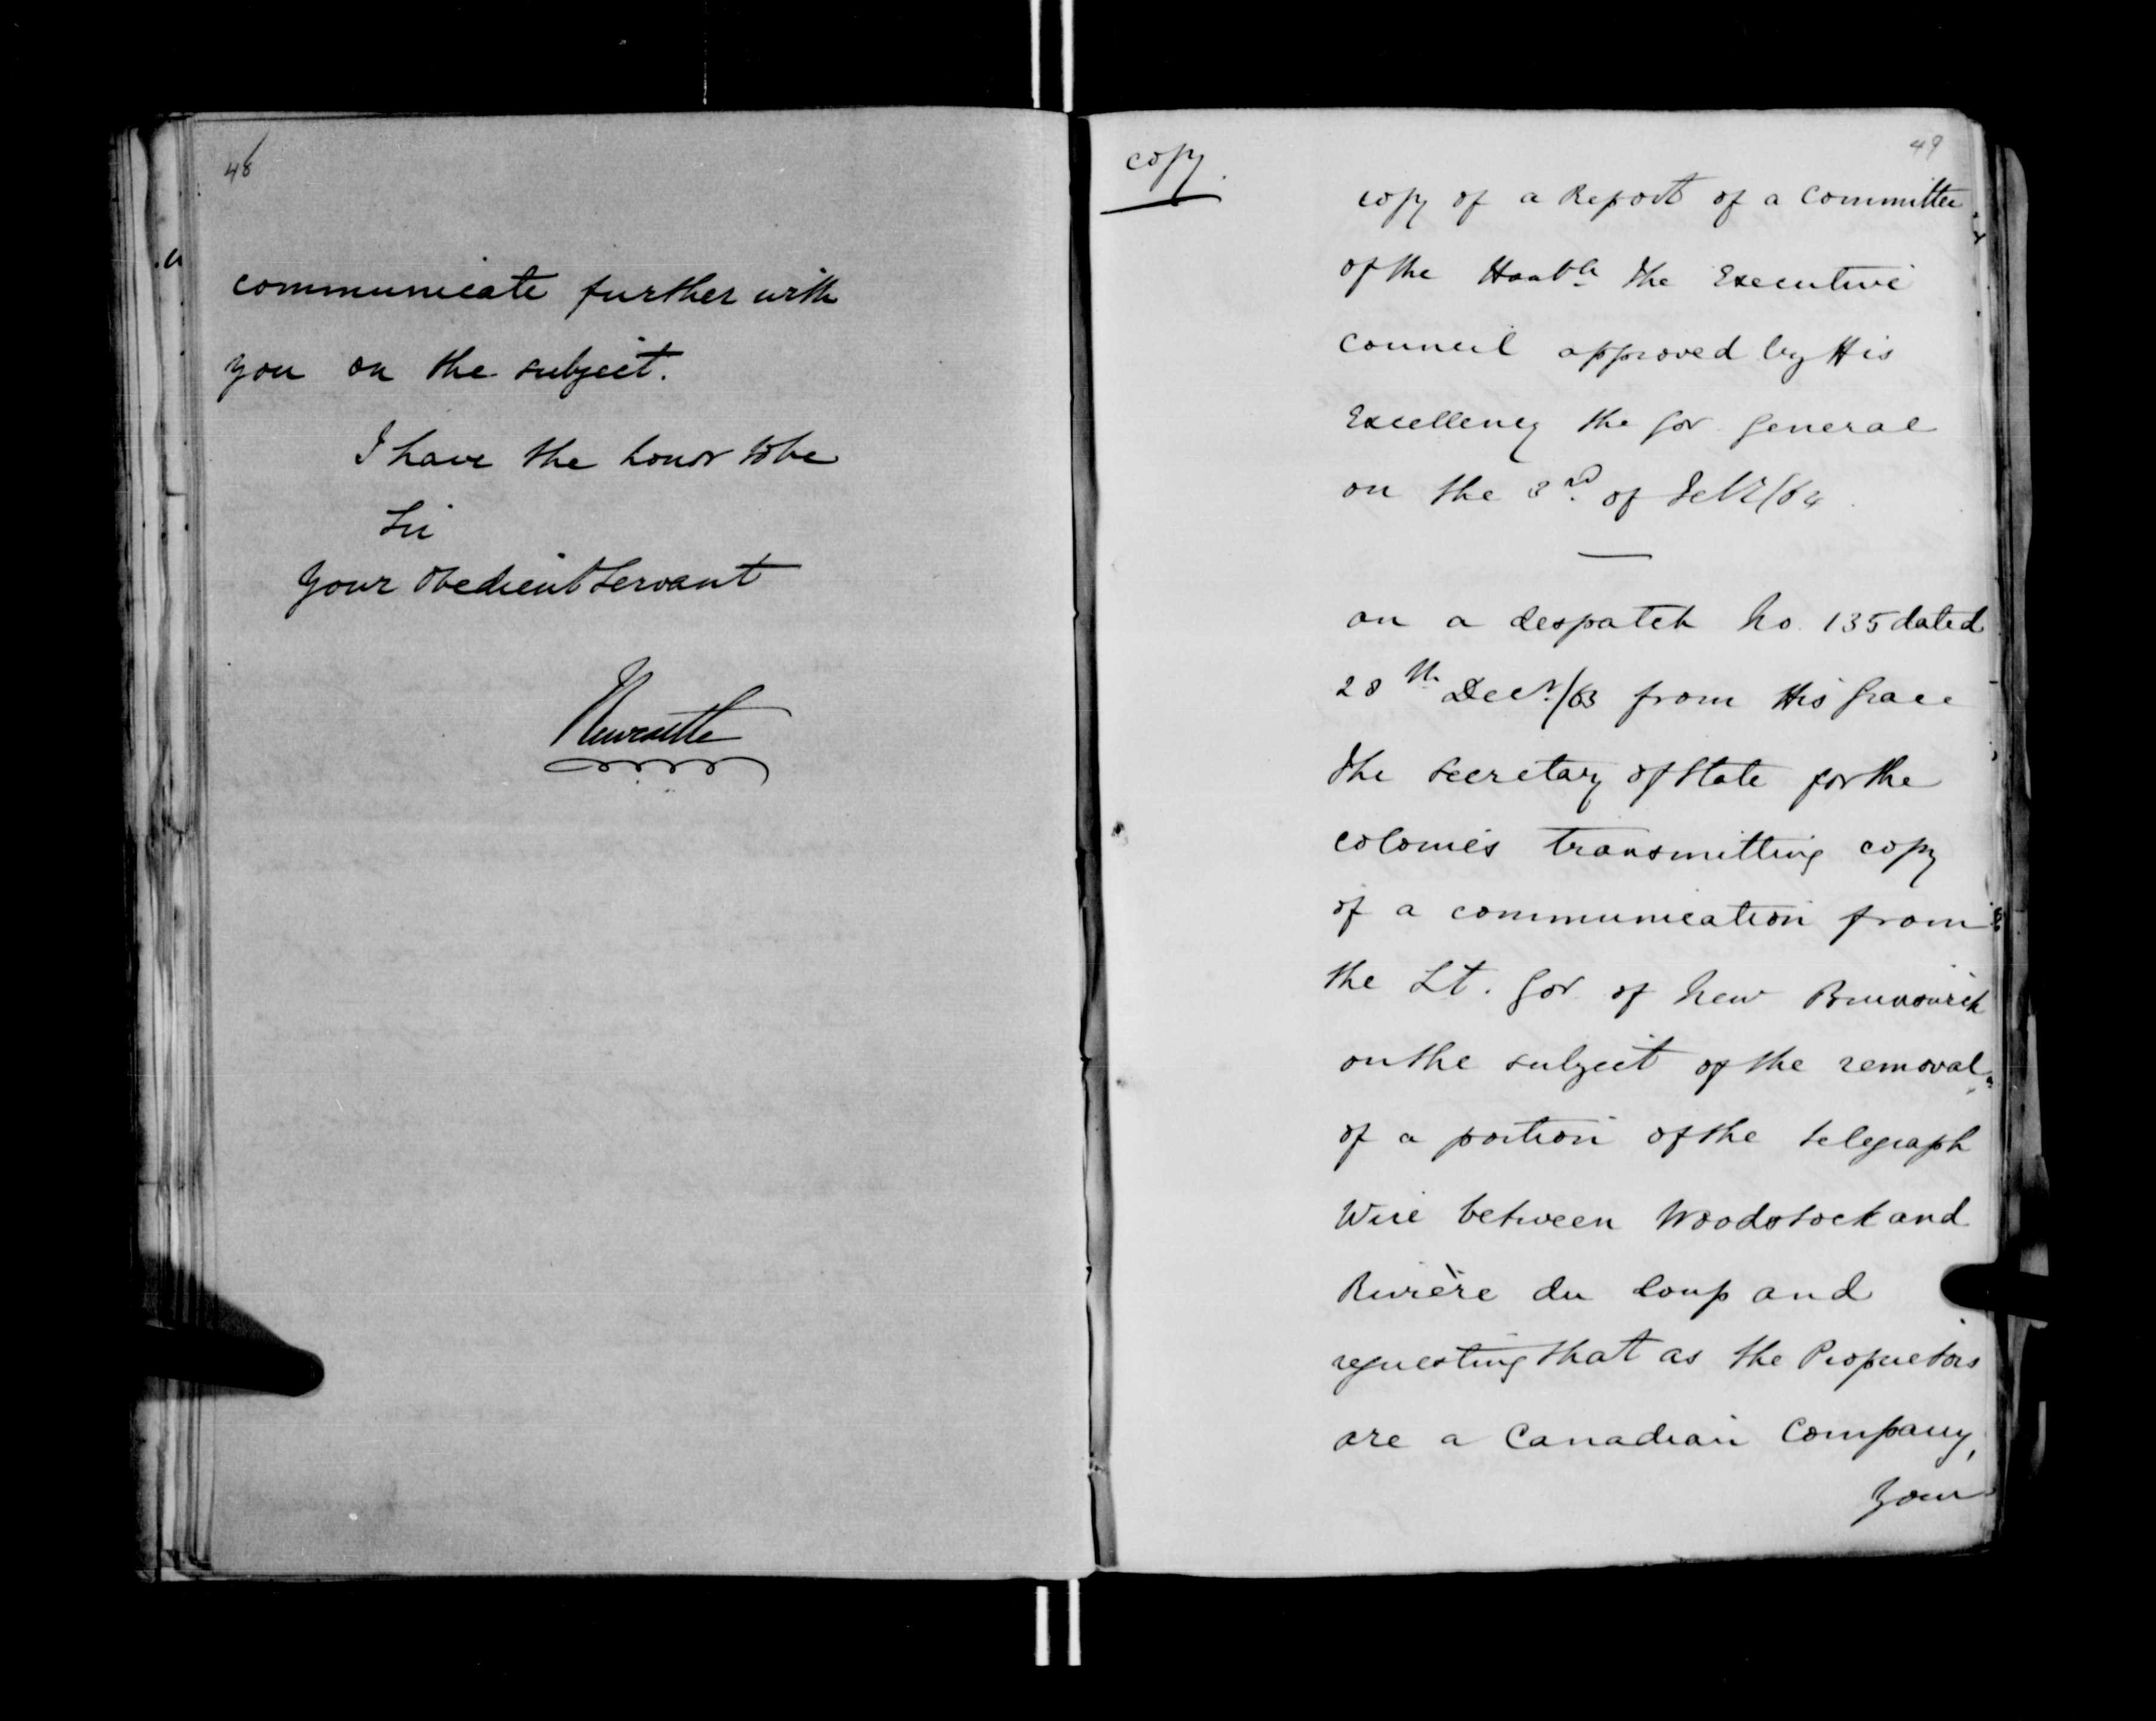 48
communicate further with
you on the subject.
I have the honor to be
Sir
Your Obedient Servant
Newcastle
49
copy.
copy of a Report of a Committee
of the Honble. the Executive
Council approved by His
Excellency the Gov. General
on the 3rd. of Feb/64.
on a despatch No. 135 dated
28th. Decr./63 from His Grace
the Secretary of State for the
Colonies transmitting copy
of a communication from
the Lt. Gov. of New Brunswick
on the subject of the removal
of a portion of the telegraph
Wire between Woodstock and
Rivière du Loup and
requesting that as the Proprietors
are a Canadian Company,
Your